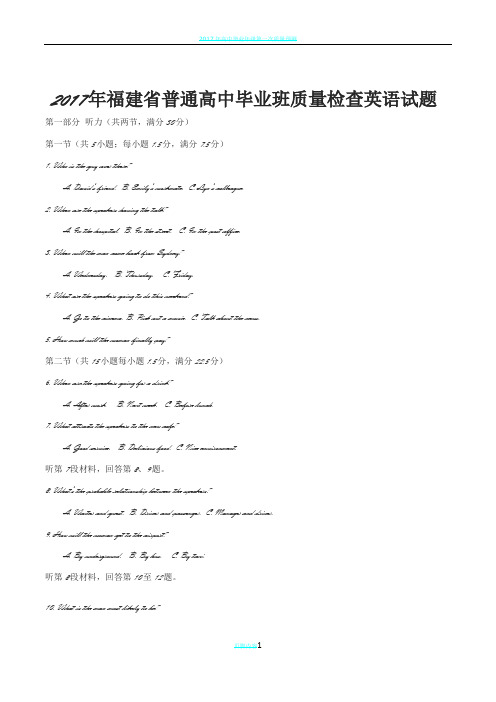 2017年福建省普通高中毕业班质量检查英语试题
第一部分 听力（共两节，满分30分）
第一节（共5小题；每小题1.5分，满分7.5分）
1. Who is the guy over there?
A. David's friend. B. Emily's workmate. C. Lye's colleague.
2. Where are the speakers having the talk?
A. In the hospital. B. In the street. C. In the post office.
3. When will the man come back from Sydney?
A. Wednesday. B. Thursday. C. Friday.
4. What are the speakers going to do this weekend?
A. Go to the cinema. B. Pick out a movie. C. Talk about the menu.
5. How much will the woman finally pay?
第二节（共15小题每小题1.5分，满分22.5分）
6. When are the speakers going for a drink?
A. After work. B. Next week. C. Before lunch.
7. What attracts the speakers to the new cafe?
A. Good service. B. Delicious food. C. Nice environment.
听第7段材料，回答第8、9题。
8. What's the probable relationship between the speakers?
A. Waiter and guest. B. Driver and passenger. C. Manager and driver.
9. How will the woman get to the airport?
A. By underground. B. By bus. C. By taxi.
听第8段材料，回答第10至12题。
10. What is the man most likely to be?
1